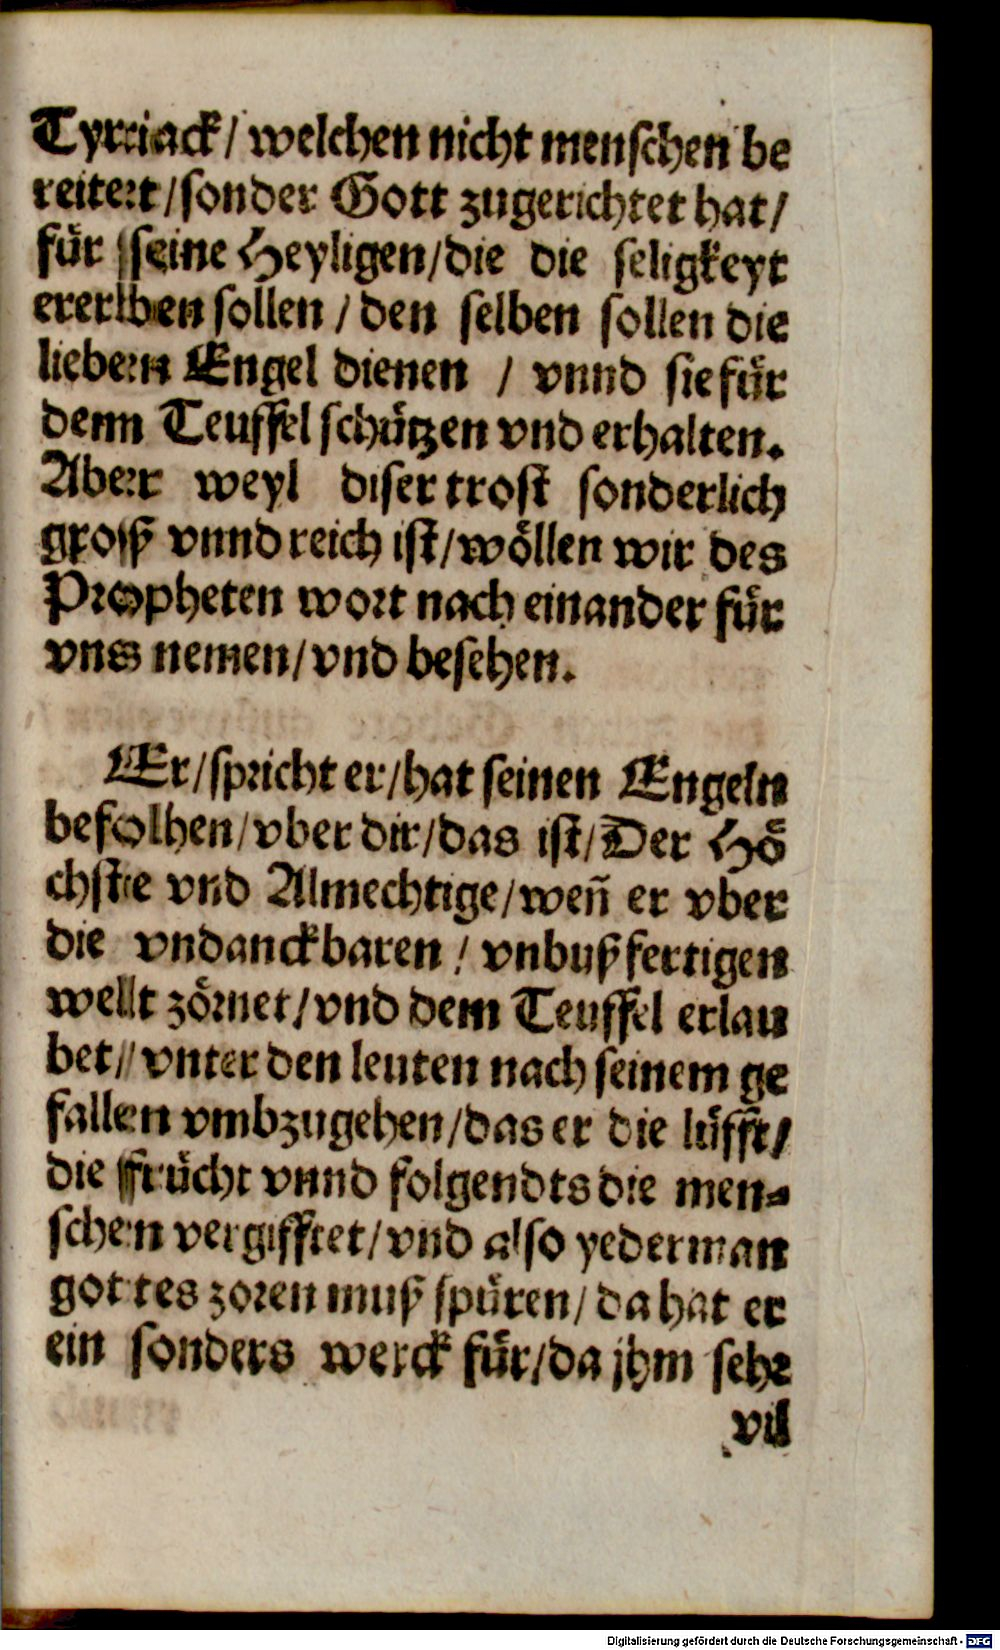 Tyriack/ welchen nicht menschen be
reitet/sonder Gott zugerichtet hat/
für seine Heyligen/die die seligkeyt
ererben sollen / den selben sollen die
lieben Engel dienen / vnnd sie für
denn Teuffel schützen vnd erhalten.
Aber weyl diser trost sonderlich
groß vnnd reich ist/wöllen wir des
Propheten wort nach einander für
vns nemen/vnd besehen.
Er/spricht er/hat seinen Engeln
befolhen/vber dir/das ist/Der Hö
chste vnd Almechtige/weñ er vber
die vndanckbaren / vnbußfertigen
wellt zörnet/vnd dem Teuffel erlau
bet/ vnter den leuten nach seinem ge
fallen vmbzugehen/das er die lüfft/
die frücht vnnd folgendts die men⸗
schen vergifftet/vnd also yederman
gottes zoren muß spüren/da hat er
ein sonders werck für/da jhm sehr
vil
Digitalisierung gefördert durch die Deutsche Forschungsgemeinschaft - DFG